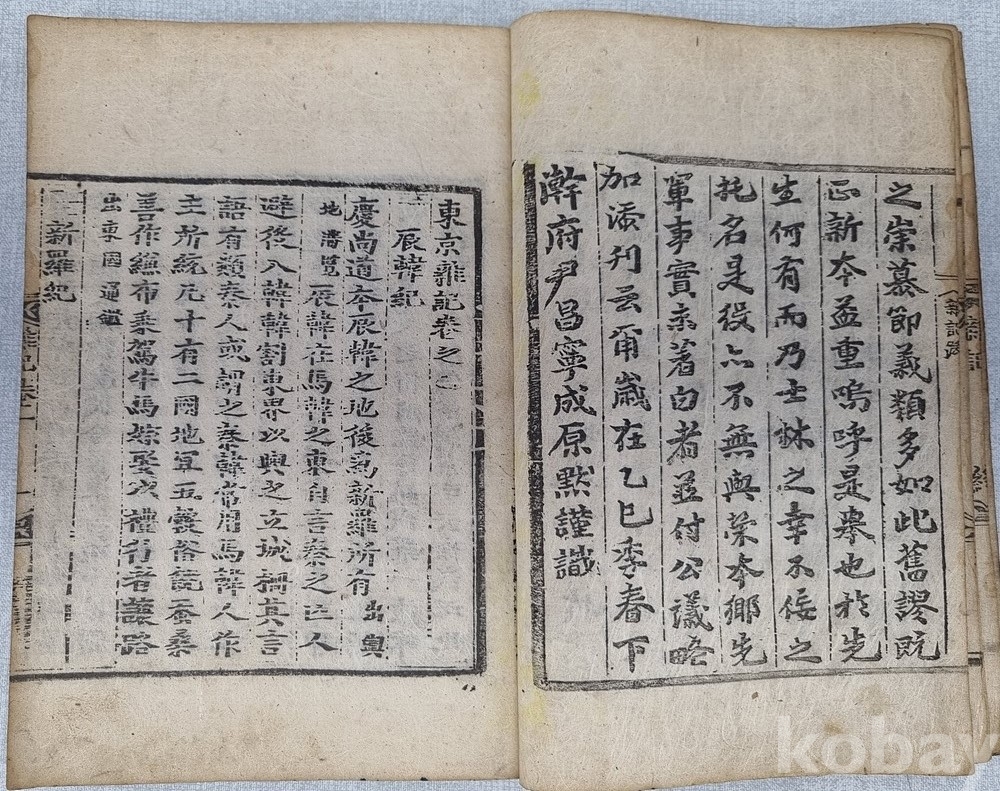 之崇慕節義類多如此舊謬旣
正新本益重嗚呼是擧也於先
生何有而乃士林之幸不佞之
托名是役亦不無與榮本鄕先
軰事實素著白者並付公議略
加添刊云爾歲在乙巳季春下
澣府尹昌寧成原默謹識
東京雜記卷之一
辰韓紀
慶尚道本辰韓之地後爲新羅所有出輿
地勝覽辰韓在馬韓之東自言秦之亡人
避役入韓韓割東界以與之立城柵其言
語有類秦人或謂之秦韓常用馬韓人作
主所統凡十有二國地宜五糓俗饒蚕桑
善作縑布乘駕牛馬嫁娶以禮行者讓路
出東國通鑑
新羅紀
kobay